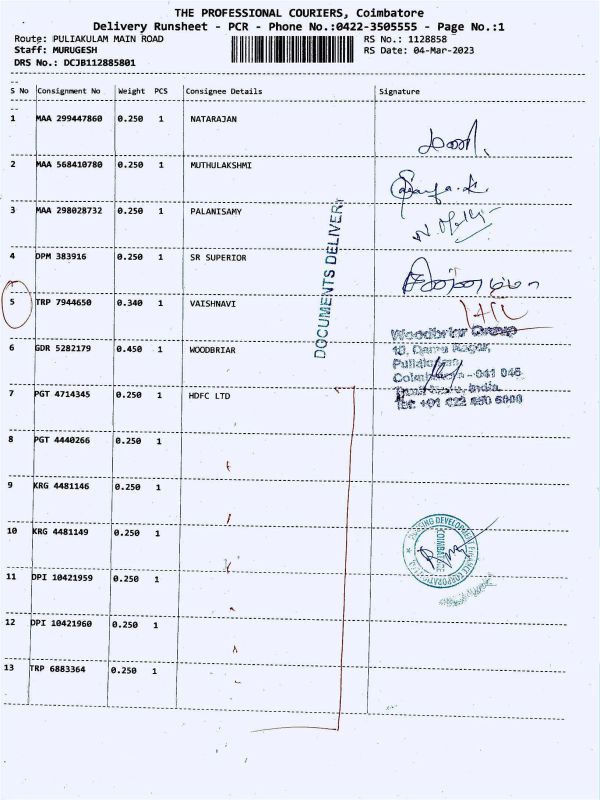 THE PROFESSIONAL COURIERS, Coimbatore
Delivery Runsheet - PCR - Phone No.:0422-3505555 - Page No.:1
Route: PULIAKULAM MAIN ROAD RS No.: 1128858
Staff: MURUGESH RS Date: 04-Mar-2023
DRS No.: DCJB112885801
S No Consignment No Weight PCS Consignee Details Signature
1 MAA 299447860 0.250 1 NATARAJAN
2 MAA 568410780 0.250 1 MUTHULAKSHMI
3 MAA 298028732 0.250 1 PALANISAMY
DOCUMENTS DELIVERY
4 DPM 383916 0.250 1 SR SUPERIOR
5 TRP 7944650 0.340 1 VAISHNAVI
Woodbriar Group
6 GDR 5282179 0.450 1 WOODBRIAR
7 PGT 4714345 0.250 1 HDFC LTD
8 PGT 4440266 0.250 1
9 KRG 4481146 0.250 1
10 KRG 4481149 0.250 1
HOUSING DEVELOPMENT FINANCE CORPORATION
COIMBATORE
11 DPI 10421959 0.250 1
12 DPI 10421960 0.250 1
13 TRP 6883364 0.250 1